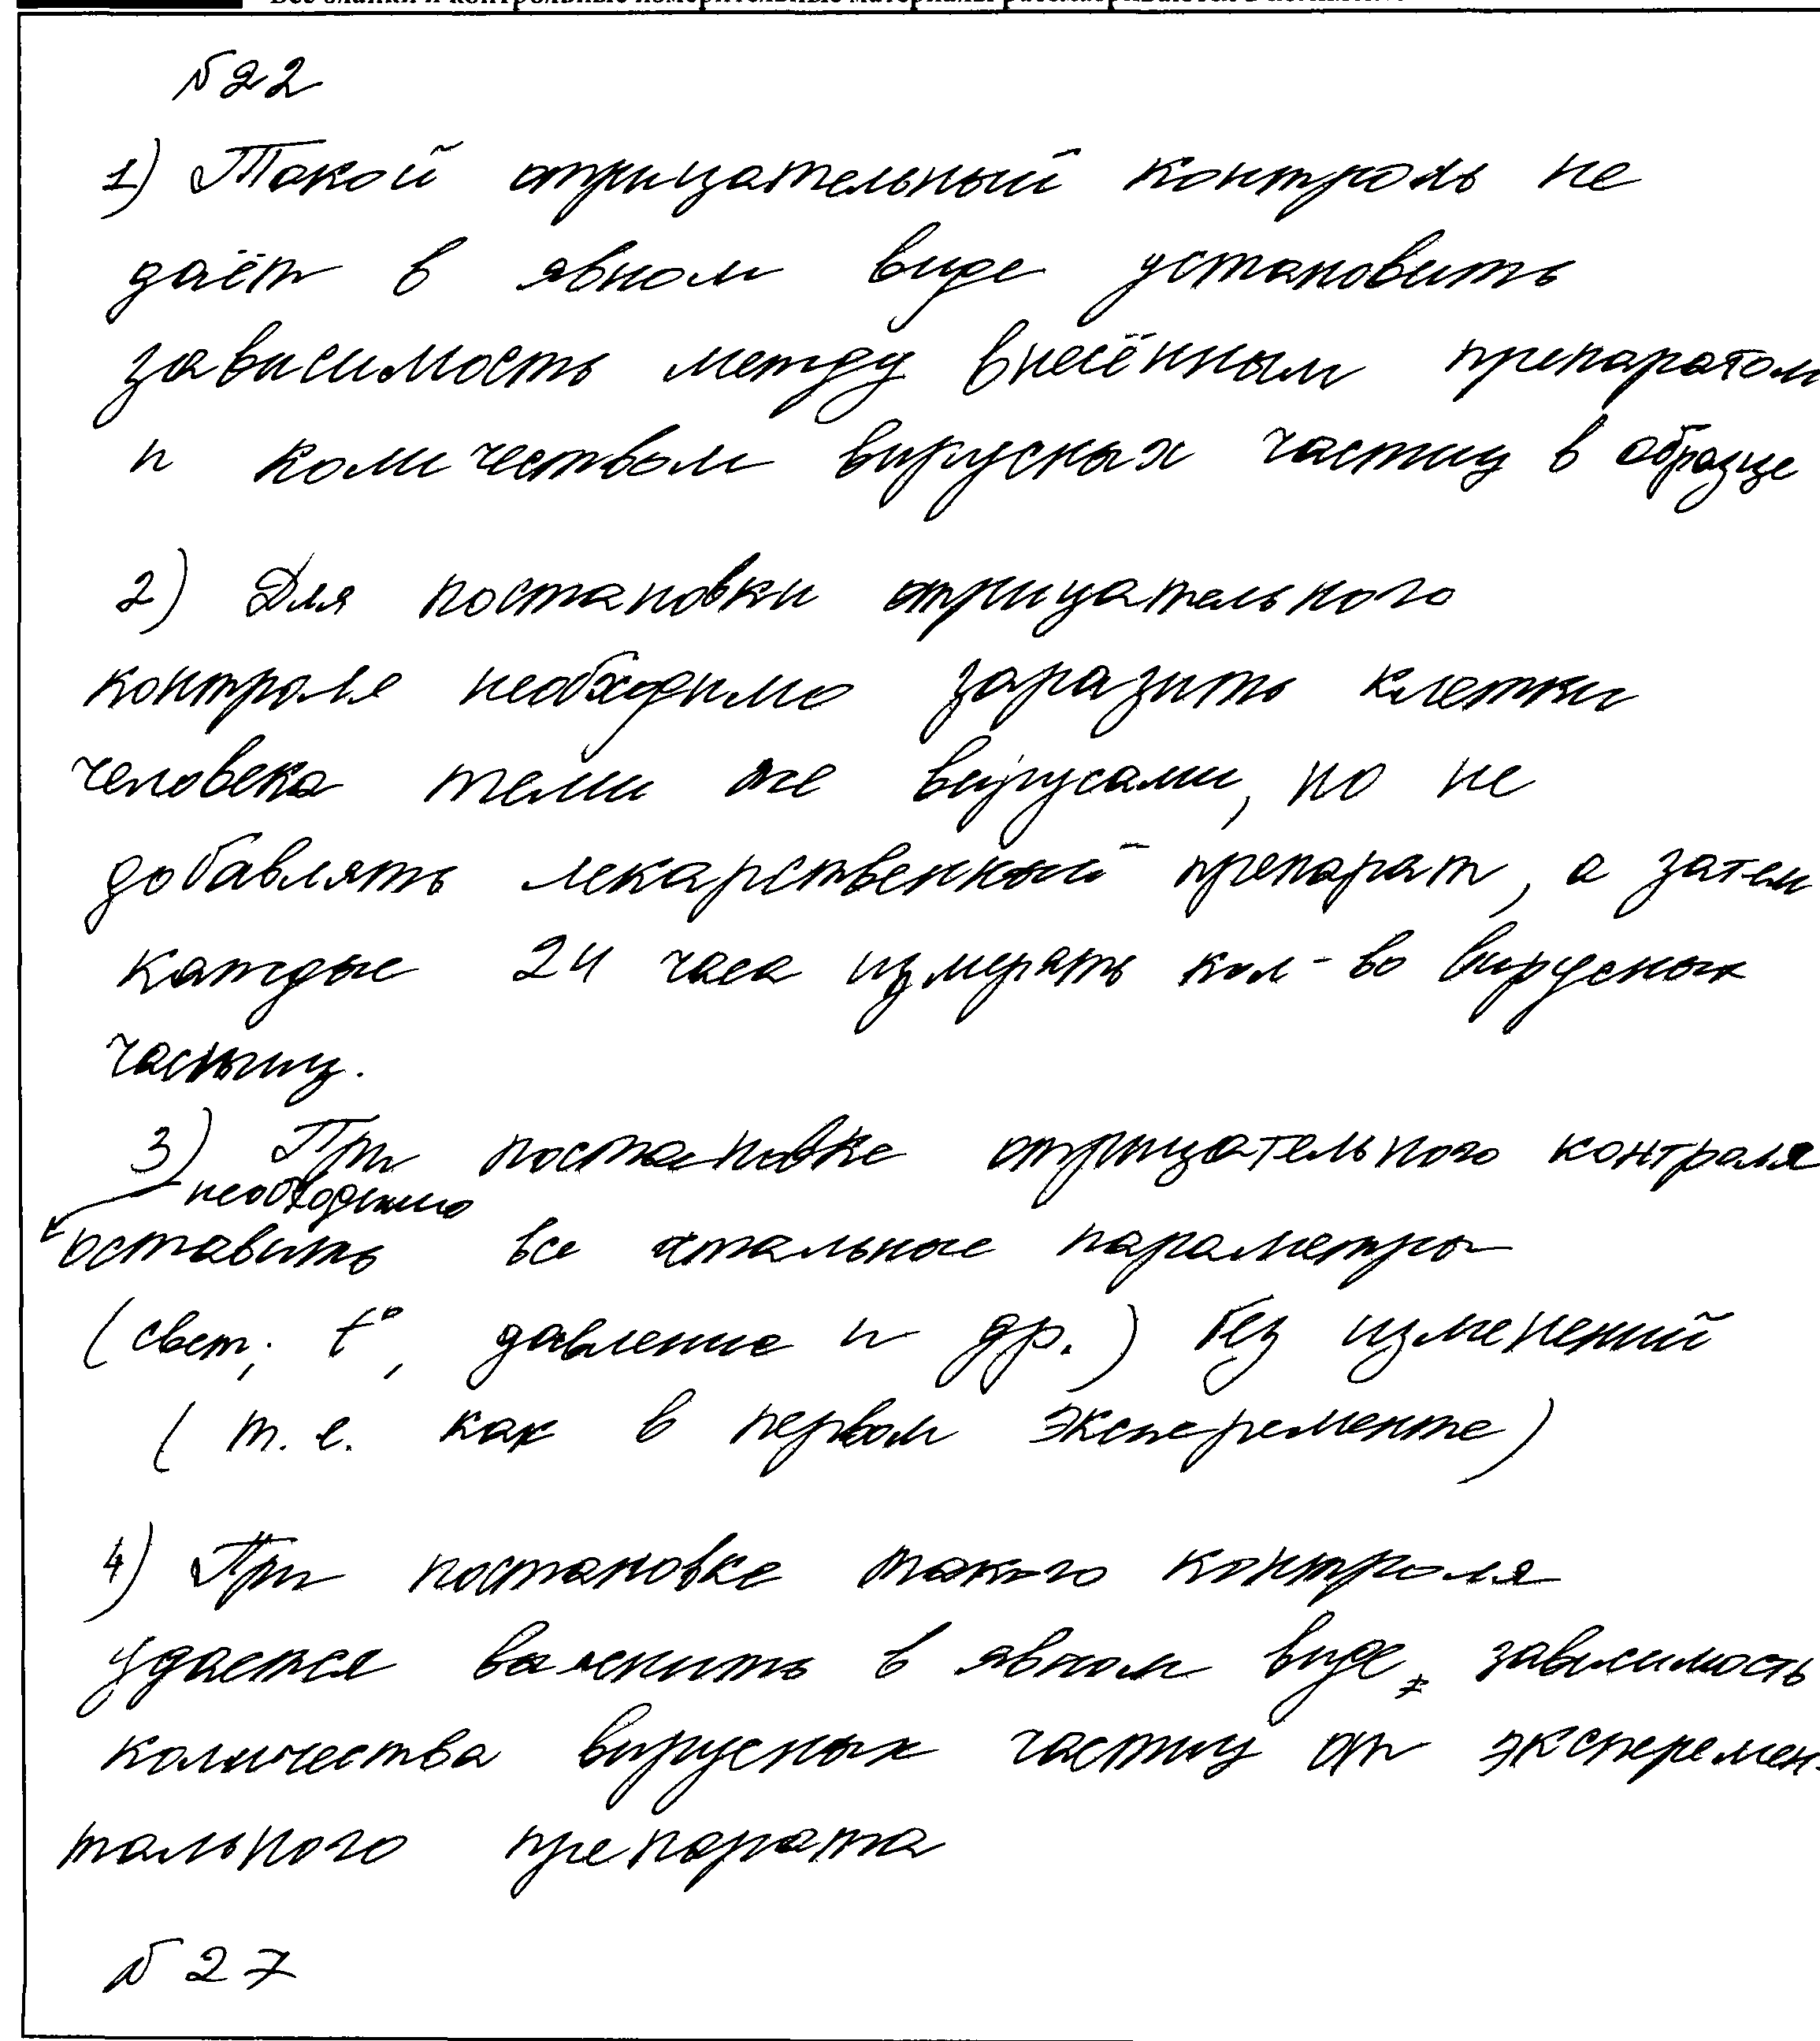 Все бланки и контрольные измерительные материалы рассматриваются в комплекте
№22
1) Такой отрицательный контроль не
даёт в явном виде установить
зависимость между внесённым препаратом
и количеством вирусных частиц в образце
2) Для постановки отрицательного
контроля необходимо заразить клетки
человека теми же вирусами, но не
добавлять лекарственный препарат, а затем
каждые 24 часа измерять кол-во вирусных
частиц.
3) При постановке отрицательного контроля
необходимо
оставить все остальные параметры
(свет; t°, давление и др.) без изменений
(т.е. как в первом эксперементе)
4) При постановке такого контроля
удастся выяснить в явном виде, зависимость
количества вирусных частиц от эксперемен-
тального препарата
№27